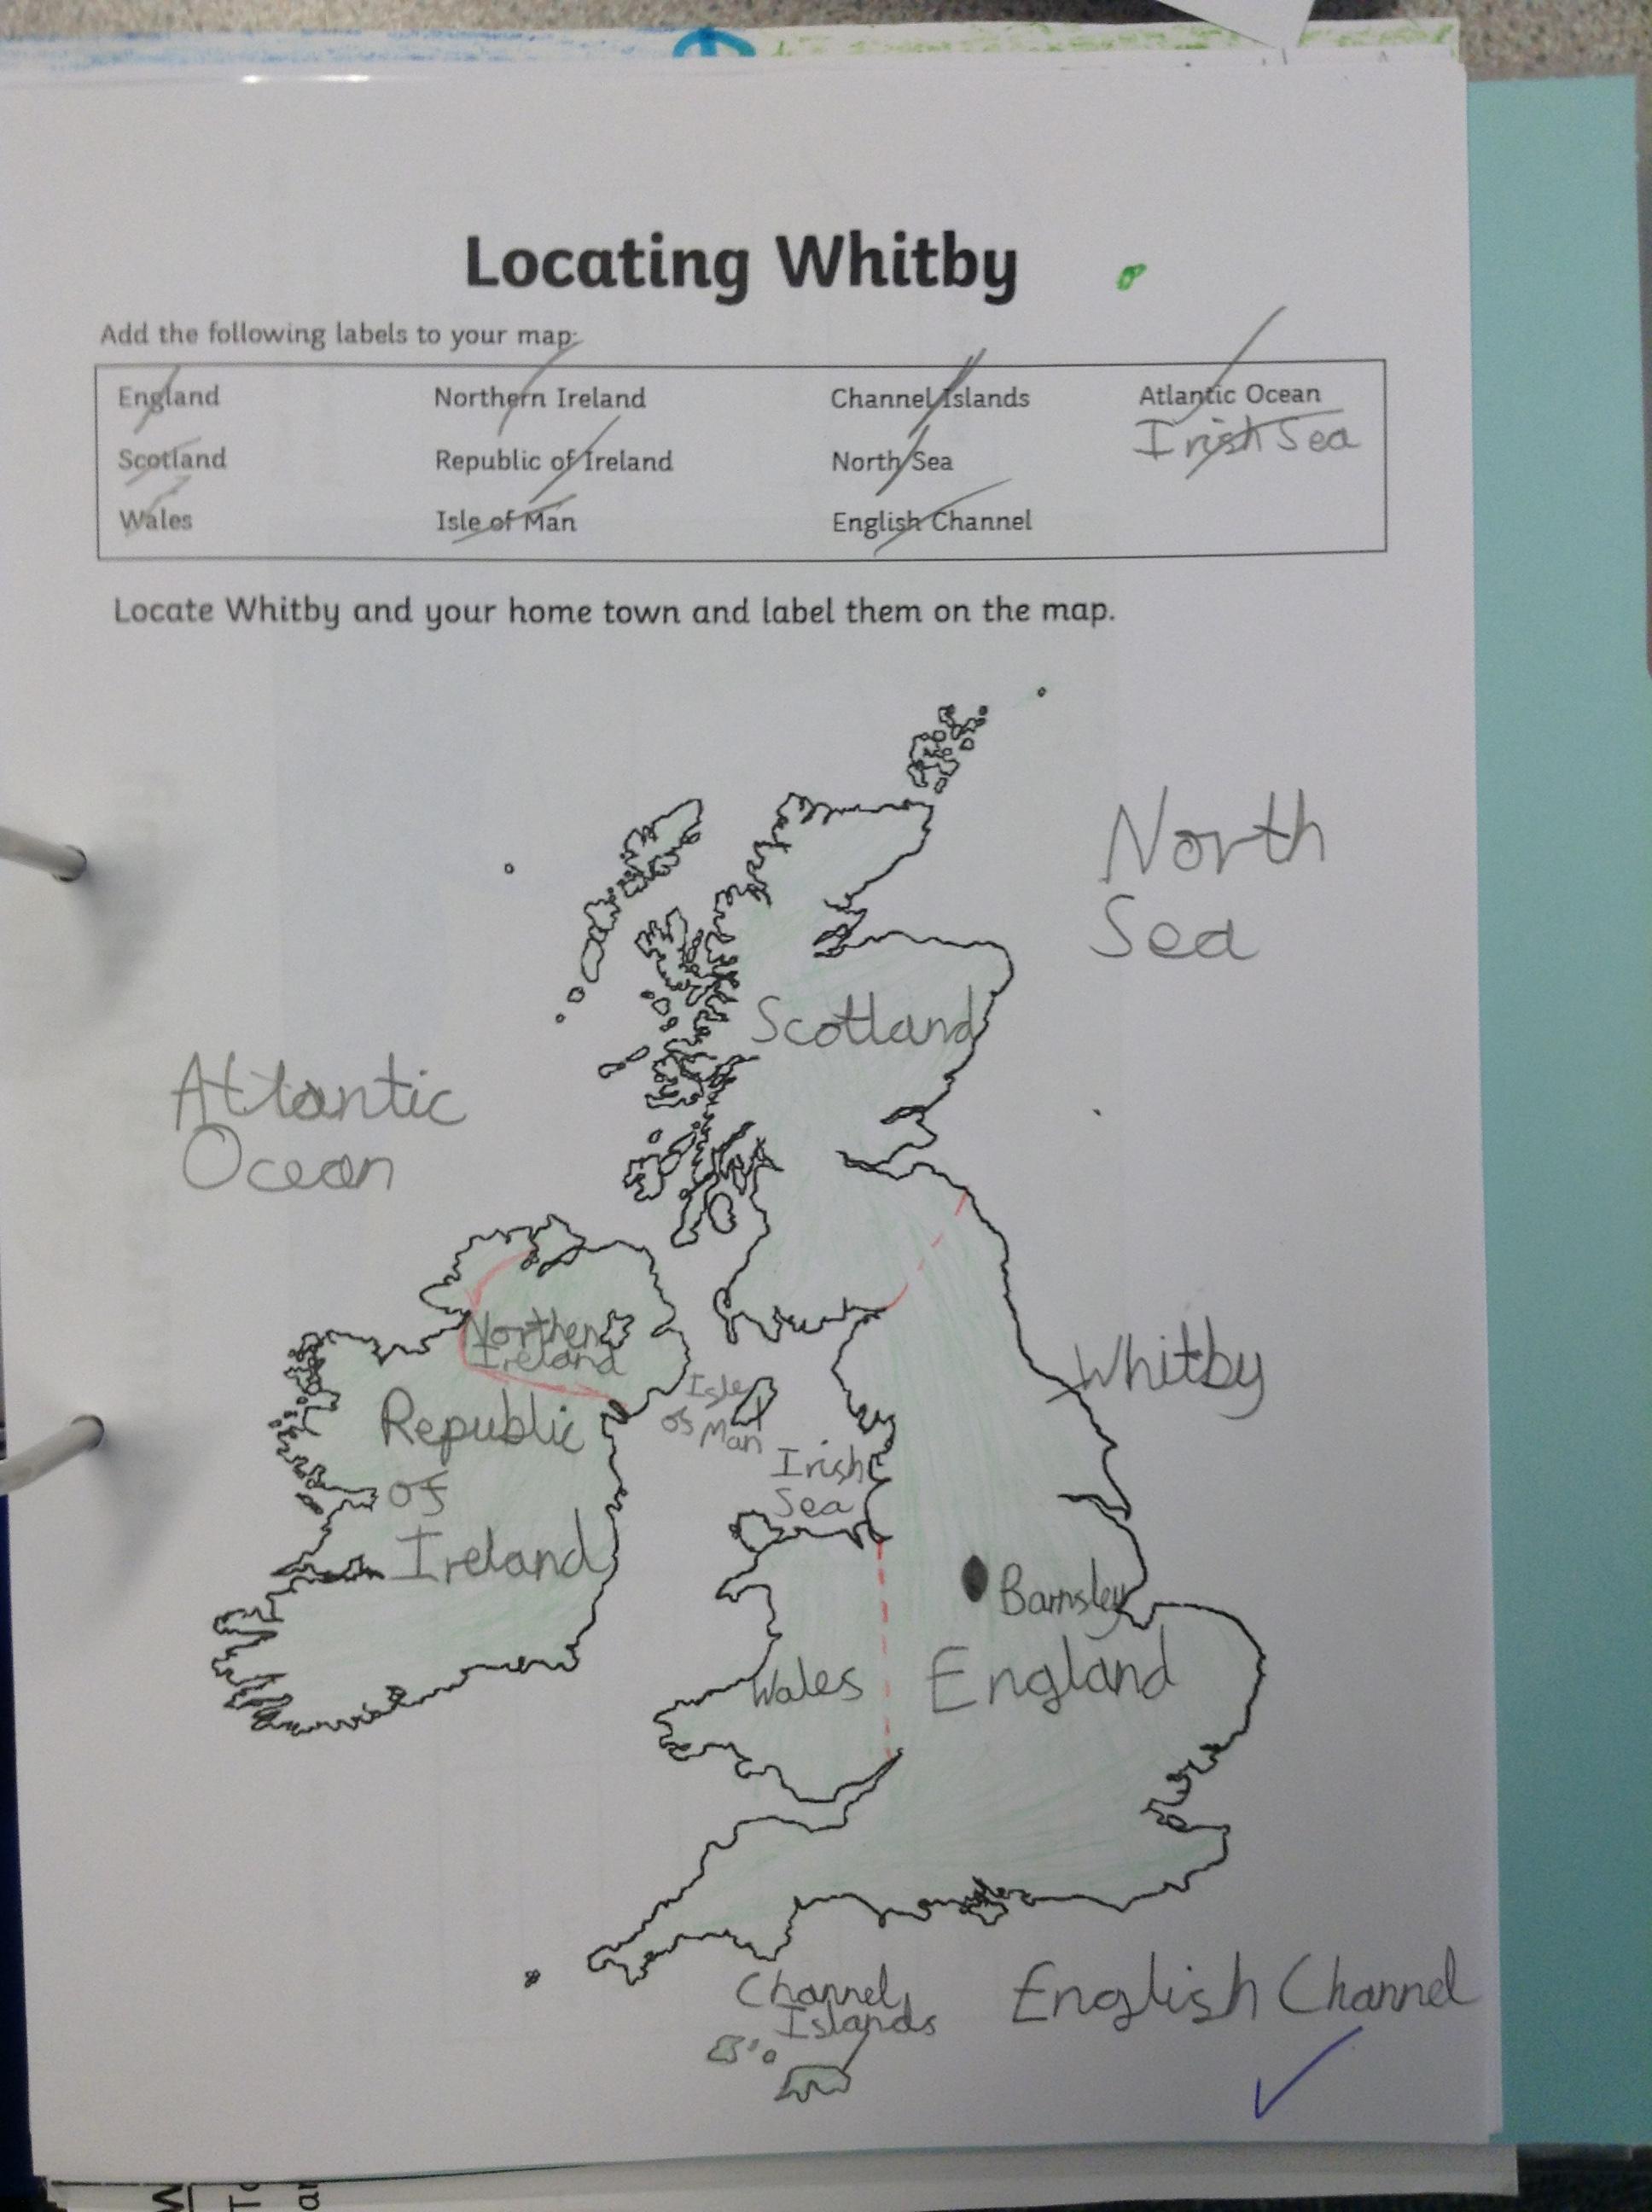 Locating Whitby
Add the following labels to your map:
England Northern Ireland Channel Islands Atlantic Ocean
Irish Sea
Scotland Republic of Ireland North Sea
Wales Isle of Man English Channel
Locate Whitby and your home town and label them on the map.
North
Sea
Scotland
Atlantic
Ocean
Northen
Ireland
Whitby
Isle
of Man
Republic
of
Ireland
Irish
Sea
Barnsley
Wales
England
Channel
Islands
English Channel